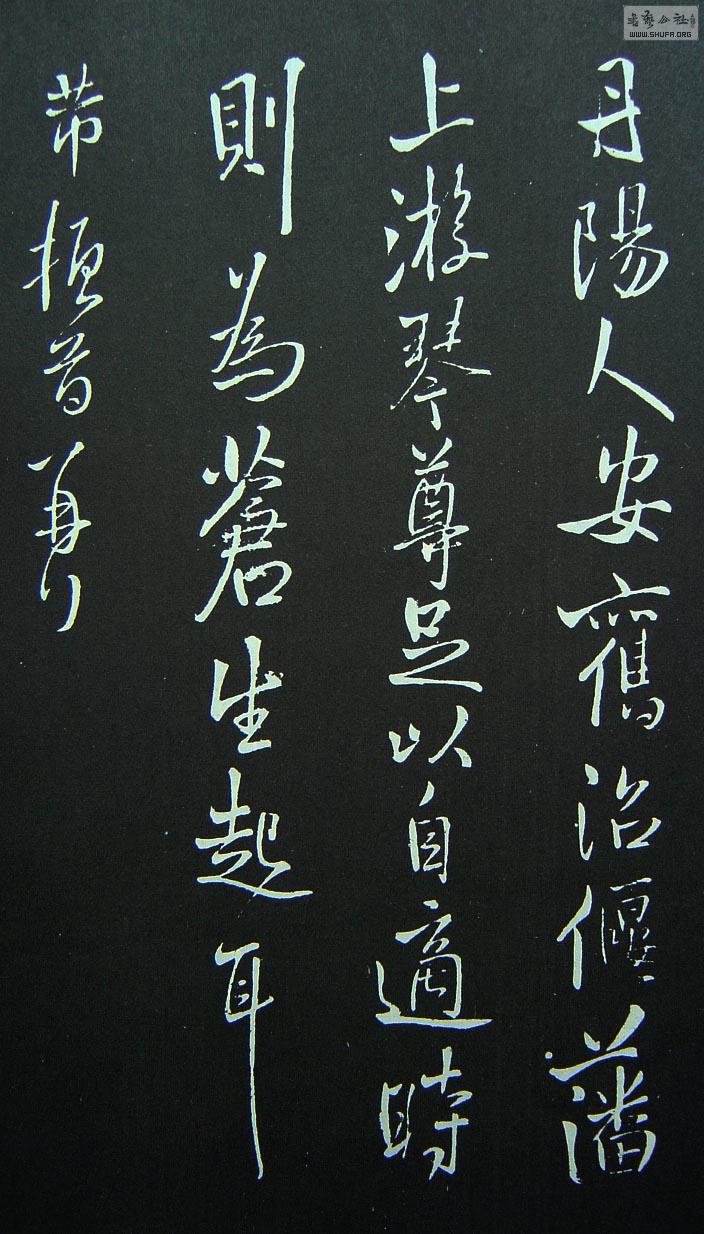 丹陽人安舊治偃藩
上游琴尊足以自適時
則為蒼生起耳
芾頓首再行
書藝公社
WWW.SHUFA.ORG